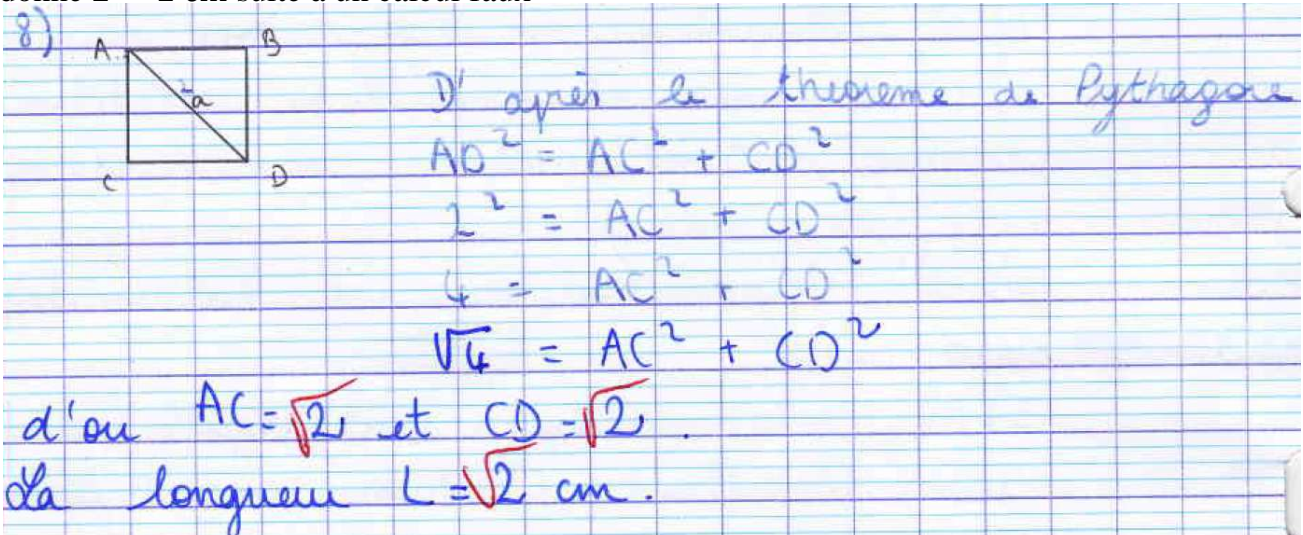 8)
A B
a
C D
D'après le théoreme de Pythagore
AD² = AC² + CD²
2² = AC² + CD²
4 = AC² + CD²
√4 = AC² + CD²
d'ou AC = √2 et CD = √2.
La longueur L = √2 cm.